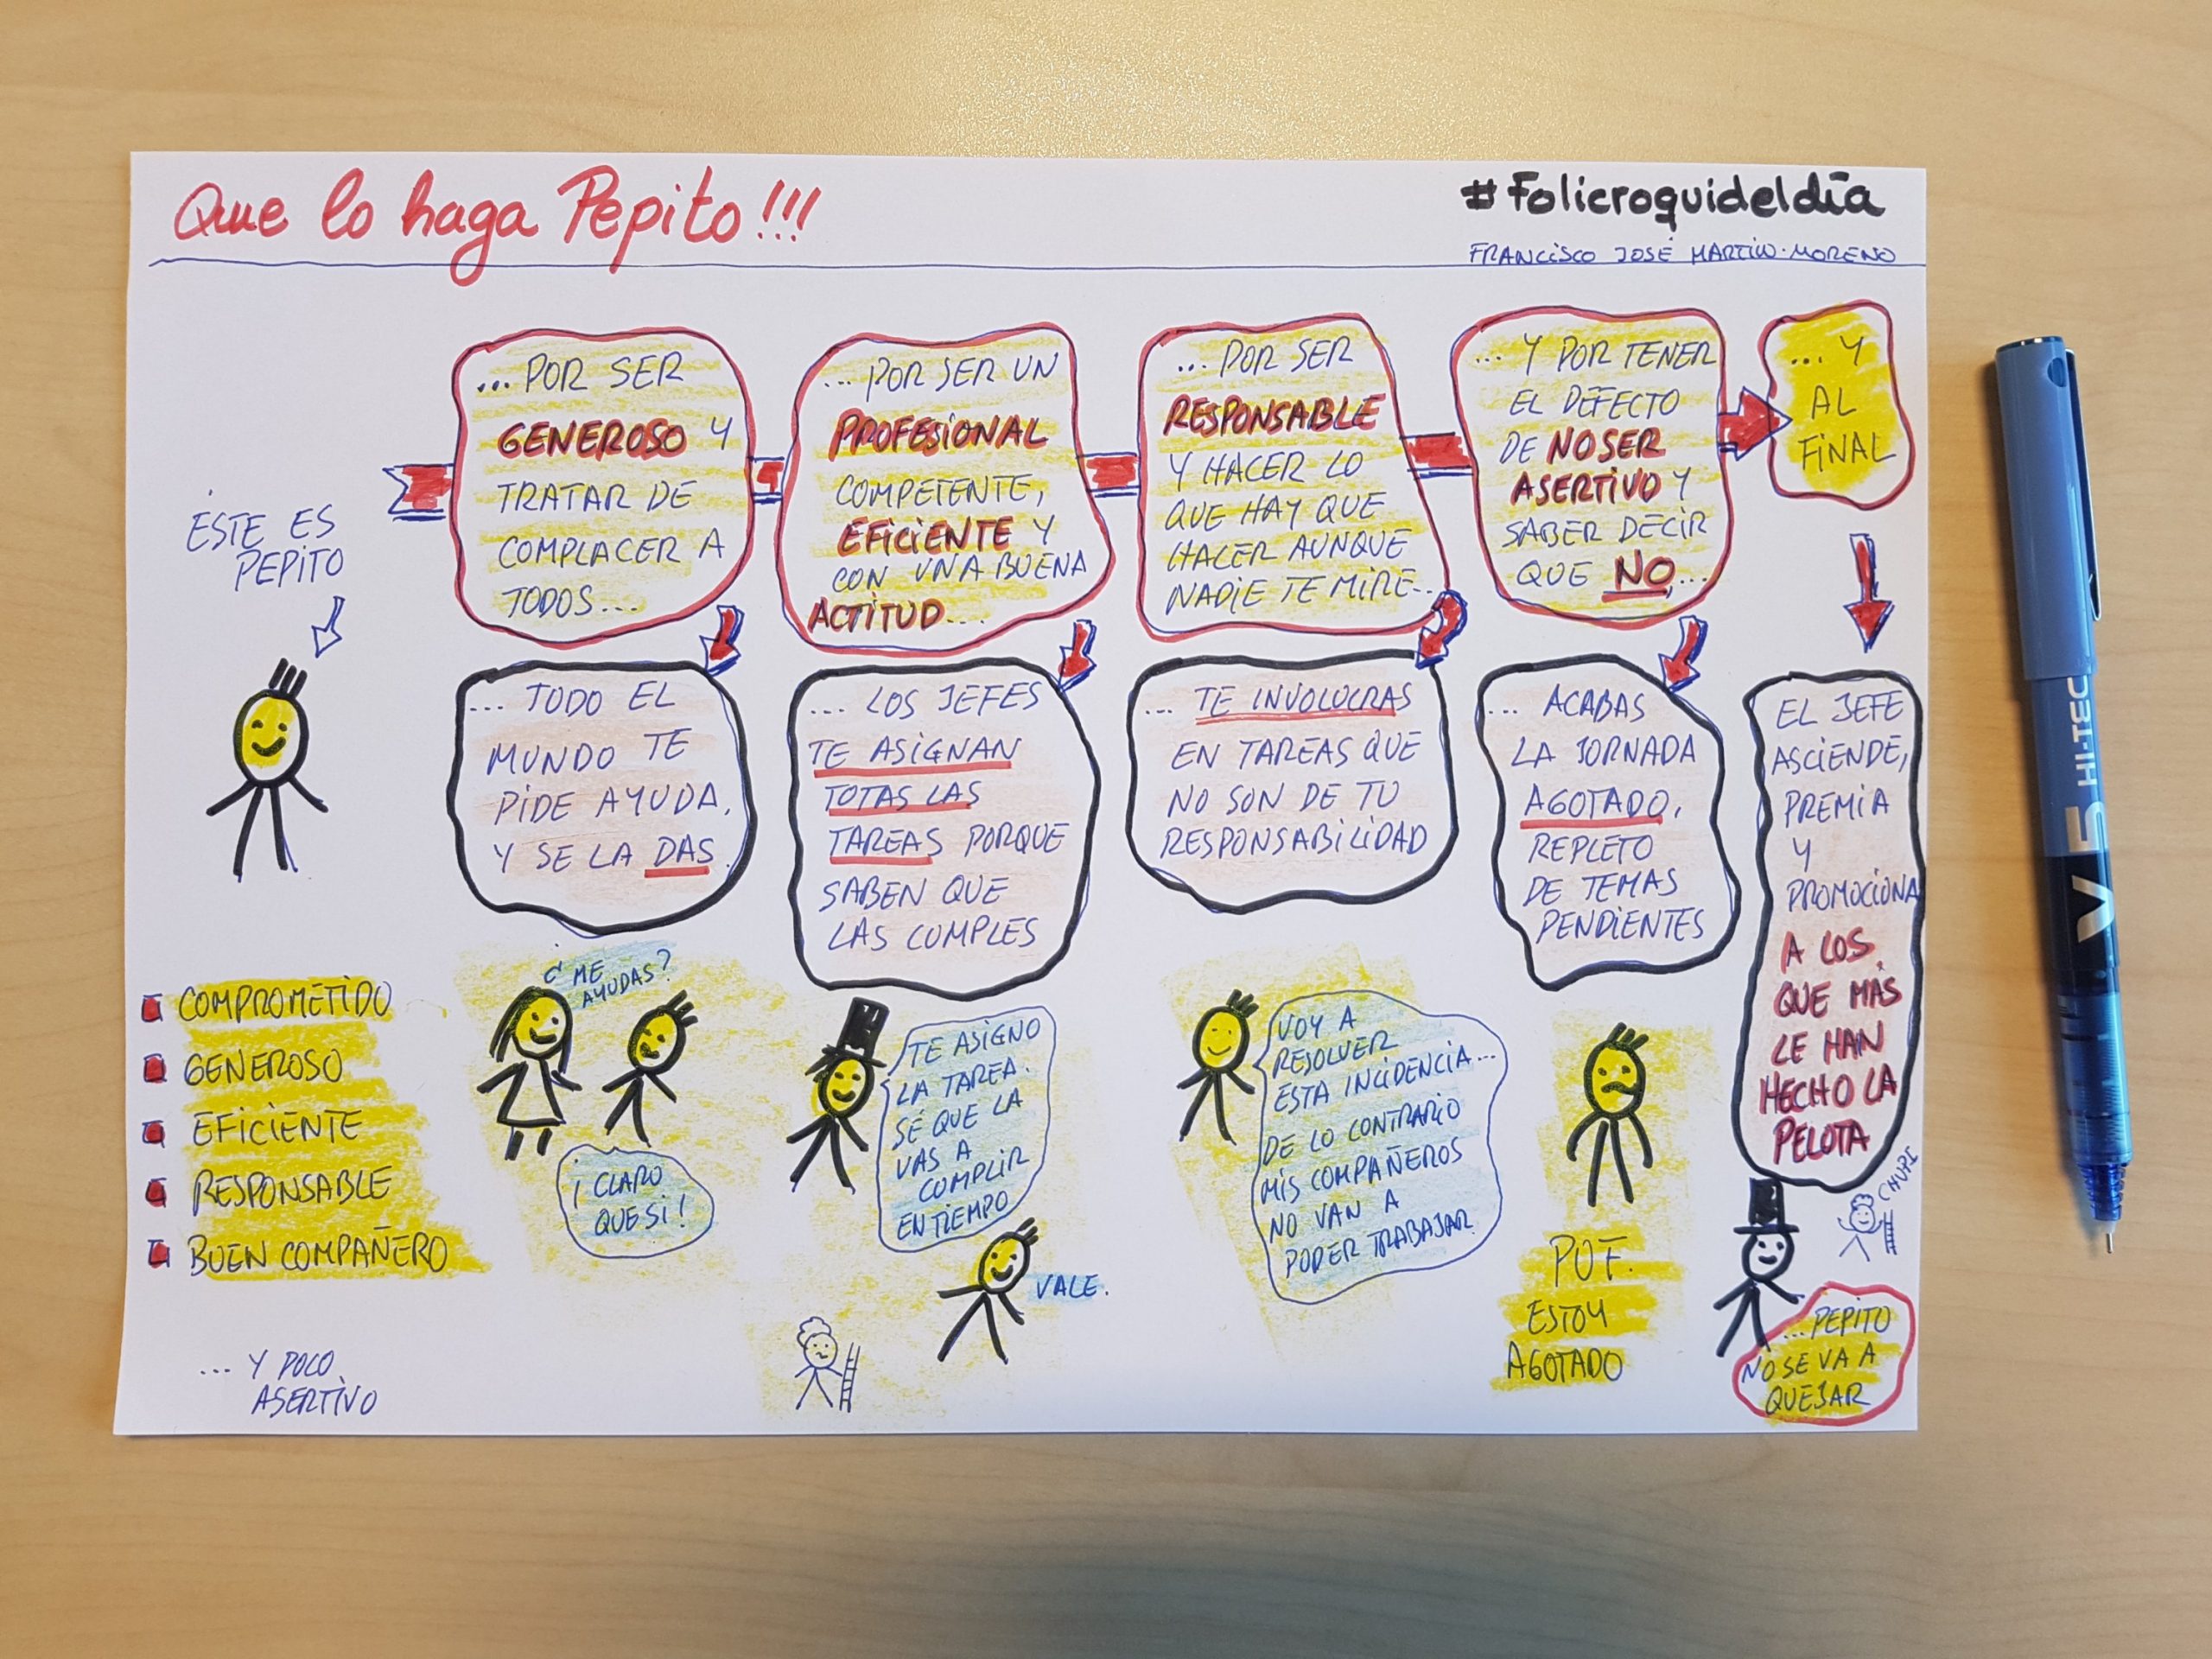 Que lo haga Pepito!!!
#Folicroquideldía
FRANCISCO JOSÉ MARTIN-MORENO
ESTE ES
PEPITO
... POR SER
GENEROSO Y
TRATAR DE
COMPLACER A
TODOS...
... POR SER UN
PROFESIONAL
COMPETENTE,
EFICIENTE Y
CON UNA BUENA
ACTITUD...
... POR SER
RESPONSABLE
Y HACER LO
QUE HAY QUE
HACER AUNQUE
NADIE TE MIRE...
... Y POR TENER
EL DEFECTO
DE NO SER
ASERTIVO Y
SABER DECIR
QUE NO...
... Y
AL
FINAL
... TODO EL
MUNDO TE
PIDE AYUDA,
Y SE LA DAS.
... LOS JEFES
TE ASIGNAN
TOTAS LAS
TAREAS PORQUE
SABEN QUE
LAS CUMPLES
... TE INVOLUCRAS
EN TAREAS QUE
NO SON DE TU
RESPONSABILIDAD
... ACABAS
LA JORNADA
AGOTADO,
REPLETO
DE TEMAS
PENDIENTES
EL JEFE
ASCIENDE,
PREMIA
Y
PROMOCIONA
A LOS
QUE MÁS
LE HAN
HECHO LA
PELOTA
COMPROMETIDO
GENEROSO
EFICIENTE
RESPONSABLE
BUEN COMPAÑERO
... Y POCO
ASERTIVO
¿ME
AYUDAS?
¡CLARO
QUE SI!
TE ASIGNO
LA TAREA.
SÉ QUE LA
VAS A
CUMPLIR
EN TIEMPO
VALE.
VOY A
RESOLVER
ESTA INCIDENCIA...
DE LO CONTRARIO
MIS COMPAÑEROS
NO VAN A
PODER TRABAJAR
POF.
ESTOY
AGOTADO
CHUPI
... PEPITO
NO SE VA A
QUEJAR
V5 HI-TEC